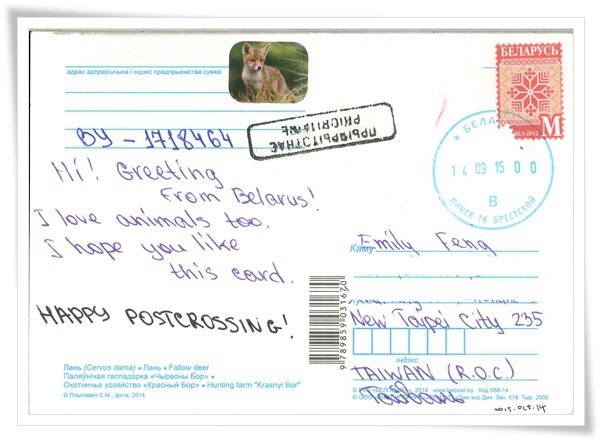 адрас адпраўшчыка і індэкс прадпрыемства сувязі
BY - 1718464
Hi! Greeting
from Belarus!
I love animals too.
I hope you like
this card.
HAPPY POSTCROSSING!
Лань (Cervus dama) • Лань • Fallow deer
Паляўнічая гаспадарка «Чырвоны Бор» •
Охотничье хозяйство «Красный Бор» • Hunting farm "Krasnyi Bor"
© Плыткевич С.М., фота, 2014
ПРЫЯРЫТЭТНАЕ
PRIORITAIRE
БЕЛАРУСЬ
M
БЕЛА
14 09 15 00
В
ПИНСК 16 БРЕСТСКОЙ
9789859031670
Каму
Emily Feng
New Taipei City 235
Індэкс
TAIWAN (R.O.C.)
Тайвань
2014 www.belpost.by Код 558-14
2015.OCT.14